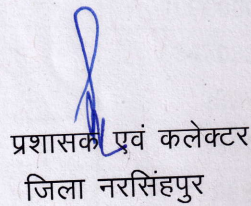 प्रशासक एवं कलेक्टर
जिला नरसिंहपुर